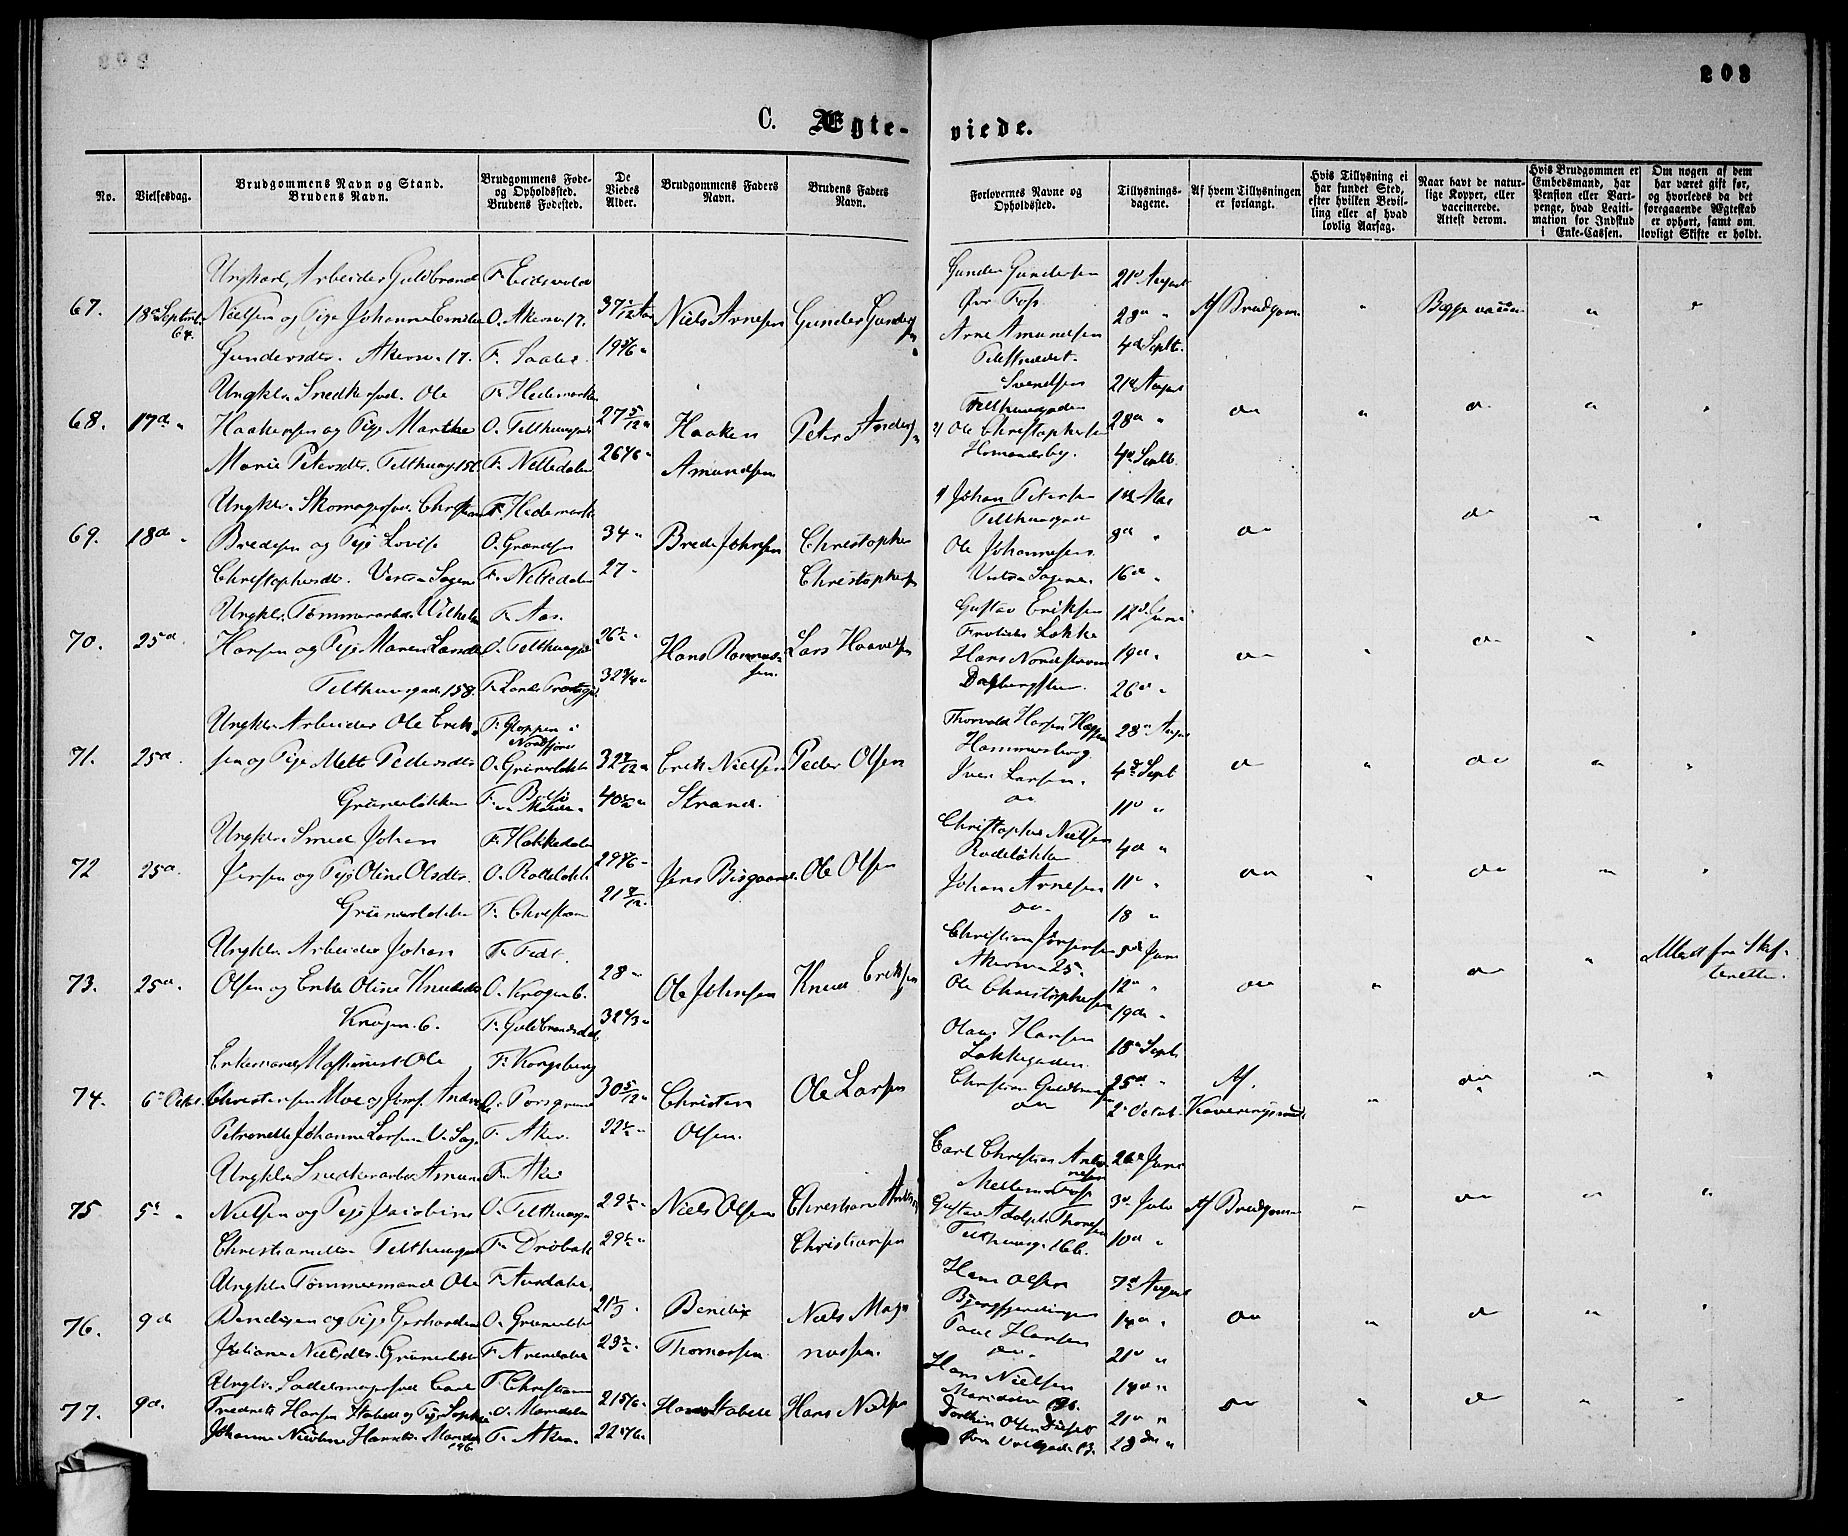 203
C. Ægte-
viede.
No.
Vielsesdag.
Brudgommens Navn og Stand.
Brudens Navn.
Brudgommens Føde-
og Opholdssted.
Brudens Fødested.
De
Viedes
Alder.
Brudgommens Faders
Navn.
Brudens Faders
Navn.
Forlovernes Navne og
Opholdssted.
Tillysnings-
dagene.
Af hvem Tillysningen
er forlangt.
Hvis Tillysning ei
har fundet Sted,
efter hvilken Bevil-
ling eller af hvad
lovlig Aarsag.
Naar havt de natur-
lige Kopper, eller
vaccinerede.
Attest derom.
Hvis Brudgommen er
Embedsmand, har
Pension eller Var-
penge, hvad Legiti-
mation for Indskud
i Enke-Cassen.
Om nogen af dem
har været gift før,
og hvorledes da det
foregaaende Ægteskab
er ophørt, samt om
lovligt Skifte er holdt.
67.
18de Septmbr.
64.
Ungkarl, Arbeider Guldbrand
Nielsen og Pige Johanne Emilie
Gundersdtr. Akersv. 17.
F. Eidsvold
O. Akersv. 17.
37
19
Niels Arnesen
Gunder Gunder
Gunder Gundersen
Øvr Foss
Arne Amundsen
21d August
28d "
4d Septb.
Af Brudgom
Begge vaccin
68.
17de "
Ungkl. Snedkersvd. Ole
Haakensen og Pige Marthe
Marie Petersdtr. Telthusg 156
F. Hedemarken
O. Telthusgd
F. Nittedalen
27 5/12
26 4/6
Haaken
Amundsen
Peter Anders
Svendsen
Telthusgaden
2) Ole Christophersen
Homansby.
21d August
28d "
4d Septb.
do
69.
18de "
Ungkl. Skomagersv. Christian
Bredesen og Pige Lovise
Christophersdtr. Vestre Sagene
F. Hedemark
O. Grændsen
F. Nittedalen
34 "
27 "
Brede Johnsen
Christopher
Christophersen
1) Johan Petersen
Telthusgad
Ole Johannesen
Vestre Sagene
1ste Mai
8d "
16d "
do
70.
25d.
Ungkl. Tømmerarb. Wilhelm
Hansen og Pige Maren Larsdtr
Telthusgad. 158.
F. Aas.
O. Telthusgd
F. Land Præstegj
26
32
Hans Rasmus-
sen.
Lars Haavelsen
Gustav Eriksen
Hans Nordstrøm
12d. Juni
19d "
26d "
do
71.
25d
Ungkl. Arbeider Ole Erik-
sen og Pige Mette Pedersdtr
Grünerløkken
F. Gloppen i
Nordfjord
O. Grünerløkke
F. Bolsø
Molde
32
40
Erik Nielsen
Strand.
Peder Olsen
Thorvald Hansen
Hammersborg
Iver Larsen.
do
28d Augus
4de Septb
11d "
do
72
25d.
Ungkl. Smed Johan
Jensen og Pige Oline Olsdtr.
Grünerløkke
F. Hakkedalen
O. Rodeløkk
F. Christiania
29
21
Jens Bisgaard.
Ole Olsen
Christopher Nielsen
Rodeløkken
Johan Arnesen
do.
4d "
11d "
18 "
do
73.
25d.
Ungkl. Arbeider Johan
Olsen og Enke Oline Knudsdtr
Krogen. 6.
F. Fedt.
O. Krogen 6.
F. Guldbrandsdal.
28 "
32
Ole Johnsen
Knud Eriksen
Christian Jørgensen
Akersv 25.
Ole Christophersen
5d Juni
12d "
19de "
do
Attest fra Skif-
teretten.
74.
6te Octbr.
Enkemand, Maskinist Ole
Christensen Moe og Jomf. Andrea
Petronelle Johanne Larsen V. Sag.
F. Kongsberg
O. Porsgrund
F. Aker.
30 5/12
22
Christen
Olsen.
Ole Larsen
Olaus Hansen
Løkkegaden
Christian Guldbrandsen
do
18d Septb
25d "
2d Octob.
Af
do
75
5te "
Ungkl. Snedkerarbei Amund
Nielsen og Pige Jacobine
Christiansdtr Telthusgad
F. Aker
O. Telthusg
F. Drøbak
29
29
Niels Olsen
Christian
Christiansen
Carl Christian
Mellem Foss
Gustav Adolph Thoresen
Telthusg. 166.
26d Juni
3d Juli
10d "
Af Brudgom
do
76.
9d
Ungkl. Tømmermand Ole
Bendixen og Pige Gerhardine
Juliane Nielsdtr. Grünerløkk
F. Aurdalen
O. Grünerløkk
F. Arendal
21
23
Bendix
Thomassen.
Niels Mag-
nussen.
Hans Olsen
Bjergfjerdingen
Paul Hansen
do.
7d August
14d "
21d "
do
77.
9d.
Ungkl. Sadelmagersvd Carl
Fredrik Hansen Stabell og Pige Sophie
Johanne Nicoline Hansdtr Maridal
196
F. Christiania
O. Maridalen
F. Aker.
21
22
Hans Stabell
Hans Nielsen
Hans Nielsen
Maridalen 196.
14d "
21d "
28de "
do